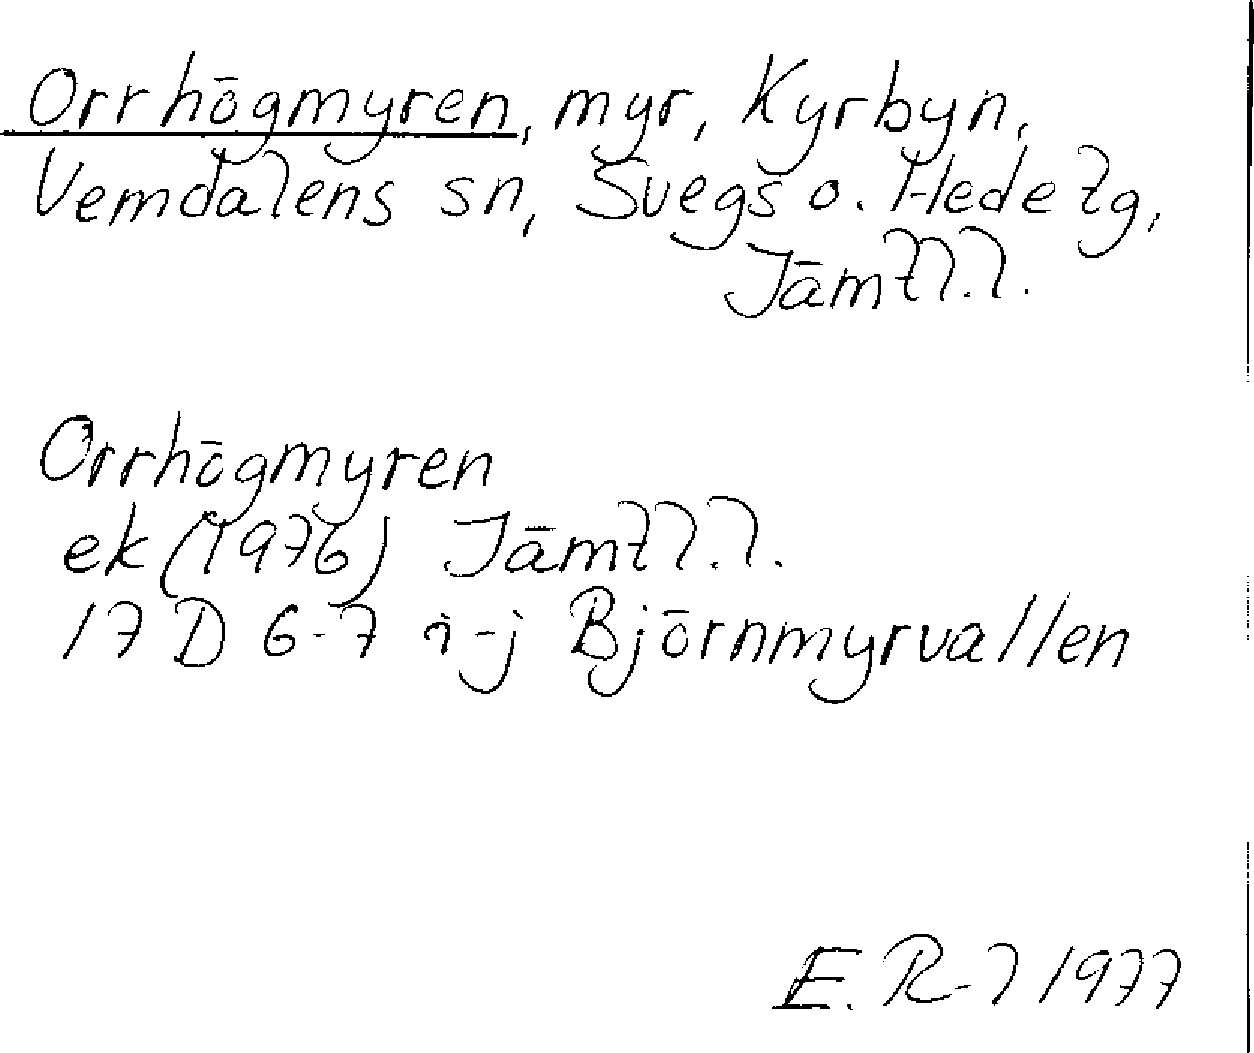 Orrhögmyren, myr, Kyrbyn,
Vemdalens sn, Svegs o. Hede tg,
Jämtl. l.
Orrhögmyren
ek (1976) Jämtl. l.
17 D 6-7 i-j Björnmyrvallen
E. R-l 1977